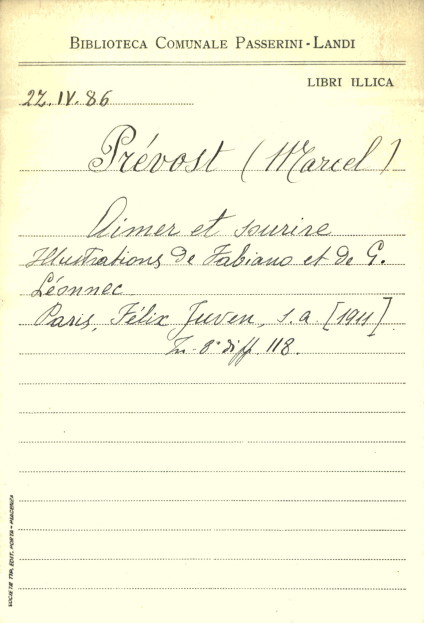 BIBLIOTECA COMUNALE PASSERINI-LANDI
LIBRI ILLICA
22.IV.86
Prévost (Marcel)
Aimer et sourire
Illustrations de Fabiano et de G.
Léonnec
Paris, Félix Juven, s.a. [1911]
In-8° diff. 118.
SOCIETÀ TIP. EDIT. PORTA - PIACENZA